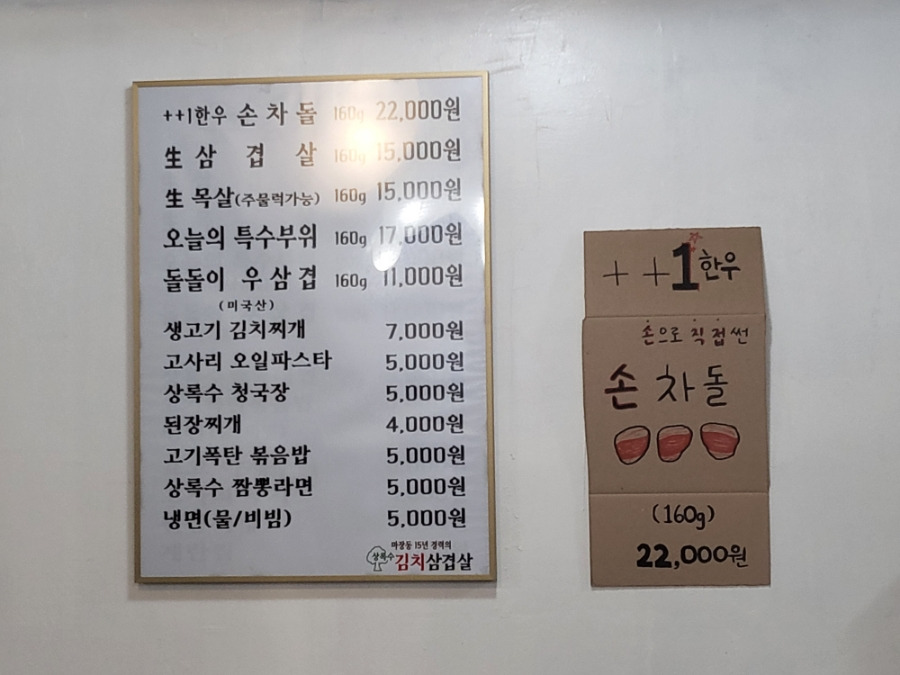 ++1한우 손 차 돌 160g 22,000원
生 삼 겹 살 160g 15,000원
生 목살(주물럭가능) 160g 15,000원
오늘의 특수부위 160g 17,000원
돌돌이 우삼겹 160g 11,000원
(미국산)
생고기 김치찌개 7,000원
고사리 오일파스타 5,000원
상록수 청국장 5,000원
된장찌개 4,000원
고기폭탄 볶음밥 5,000원
상록수 짬뽕라면 5,000원
냉면(물/비빔) 5,000원
마장동 15년 경력의
상록수 김치삼겹살
++1한우
손으로 직접 썬
손 차 돌
(160g)
22,000원